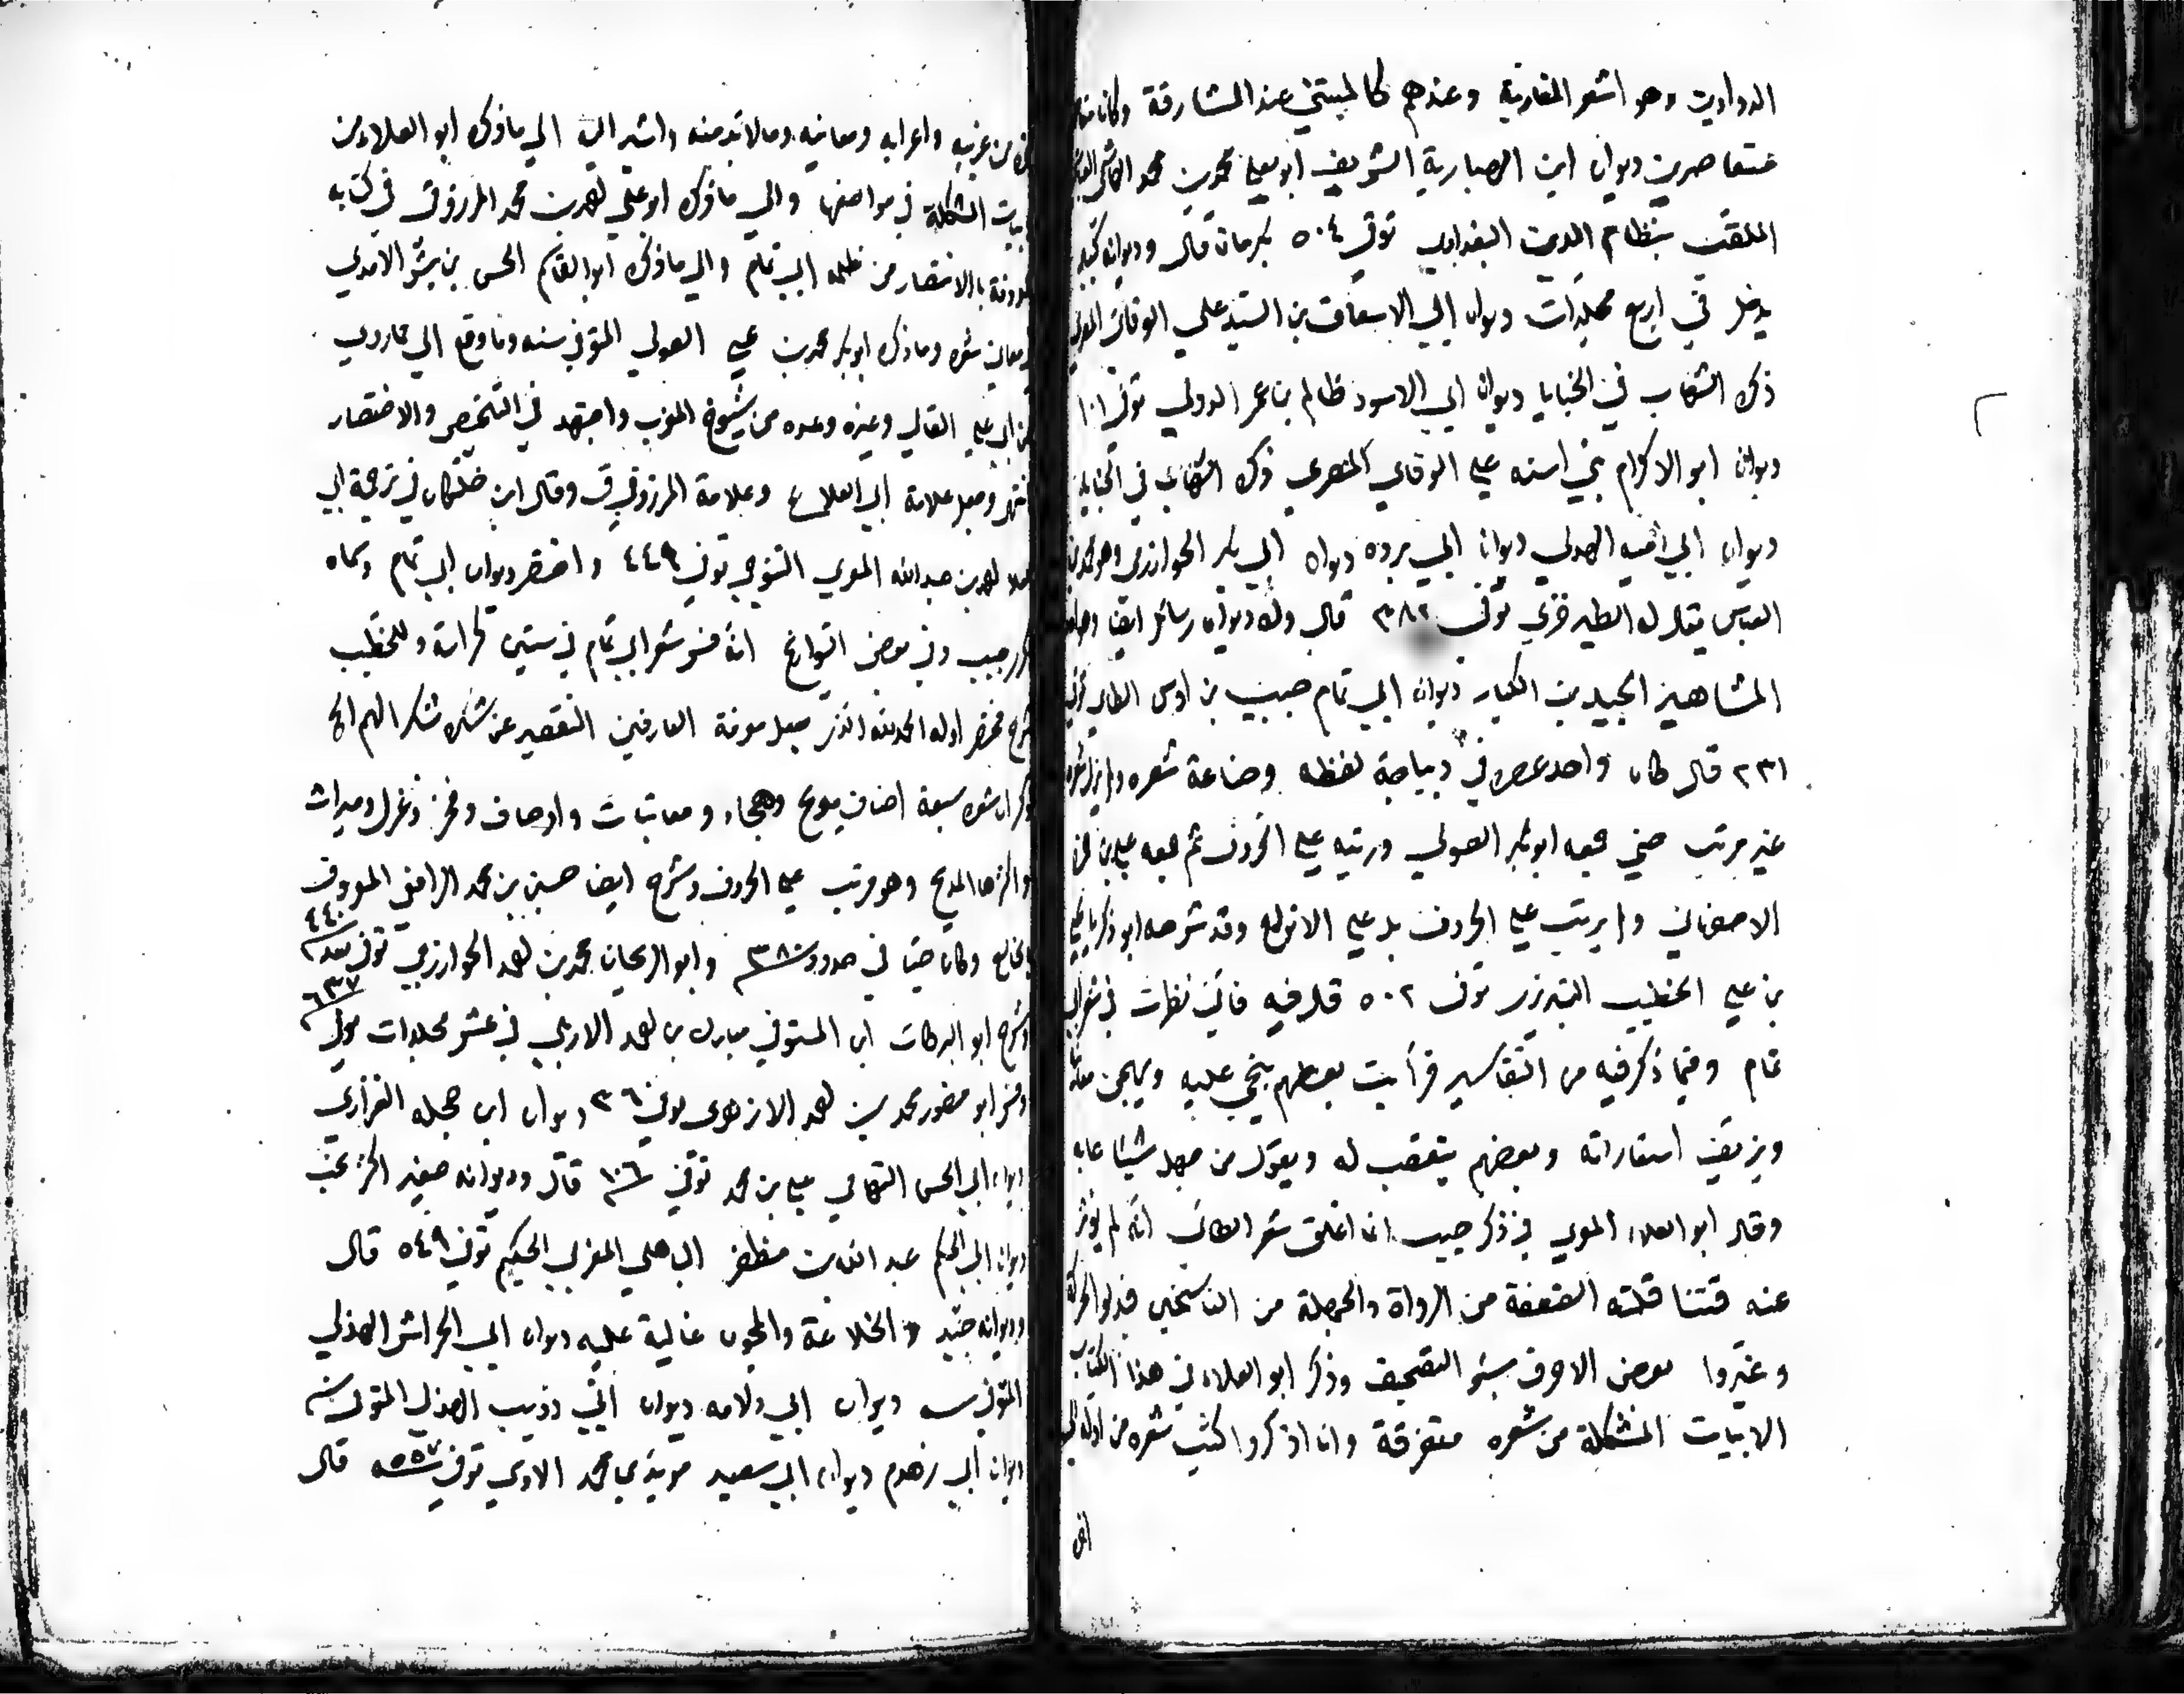 الدواوين وهو اشعر المغاربة وعندهم كالمتنبي عند المشارقة وكانا
متعاصرين ديوان ابن الهبارية الشريف ابو يعلي محمد بن محمد الهاشمي
الملقب بنظام الدين البغدادي توفي ٥٠٤ بكرمان قال وديوانه كبير
يدخل في اربع مجلدات ديوان ابي الاسعاف بن السيد علي الوفائي
ذكره الشهاب في الخبايا ديوان ابي الاسود ظالم بن عمر الدولي توفي ١٠١
ديوان ابو الاكرام علي الوفاي المصري ذكره الشهاب في الخبايا
ديوان ابي الهدلي ديوان ابي برده ديوان ابي بكر الخوارزمي وهو محمد بن
العباس يقال له الطبرخزي توفي ٣٨٢ قال وله ديوان رسائل ايضا وهو
المشاهير المجيدين الكبار ديوان ابي تمام حبيب بن اوس الطاي توفي
٢٣١ قال كان واحد عصره في ديباجة لفظه وصناعة شعره ولم يزل شعره
غير مرتب حتي جمعه ابو بكر الصولي ورتبه علي الحروف ثم جمعه علي بن حمزة
الاصفهاني ولم يرتب علي الحروف بل علي الانواع وقد شرحه ابو زكريا يحيي
بن علي الخطيب التبريزي توفي ٥٠٢ قال فيه فاني نظرت في شعر ابي
تمام وفيما ذكر فيه من التفاسير فرأيت بعضهم ينحي عليه ويهجن معانيه
ويزيف استعاراته وبعضهم يتعصب له ويقول من جهل شيئا عابه
وقال ابو العلاء المعري في ذكر حبيب انما اغلق شعر الطائي انه لم يؤثر
عنه فتناقلته الضعفة من الرواة والجهلة من الناسخين فبدلوا الحركة
وغيروا بعض الاحرف بسؤ التصحيف وذكر ابو العلاء في هذا الكتاب
الابيات المشكلة من شعره متفرقة وانا اذكر واكتب شعره من اوله الي
من غريبه واعرابه ومعانيه وما لا بد منه واشير الي ما ذكره ابو العلاء من
ابيات المشكلة في مواضعها والي ما ذكره ابو علي احمد بن محمد المرزوقي في كتابه
المعروفة بالانتصار من ظلمة ابي تمام والي ما ذكره ابو القاسم الحسن بن بشر الامدي
معاني شعره وما ذكره ابو بكر محمد بن علي الصولي المتوفي سنة وما وقع الي مما روي
عن ابي علي القالي وغيره وعده من شيوخ المغرب واجتهد في التلخيص والاختصار
انتهي وجعل علامة ابي العلاء ع وعلامة المرزوقي ق وقال ابن خلكان في ترجمة ابي
العلا احمد بن عبد الله المعري التنوخي توفي ٤٤٩ واختصر ديوان ابي تمام وسماه
ذكري حبيب وفي بعض التواريخ انه فسر شعر ابي تمام في ستين كراسة وللخطيب
شرح مختصر اوله الحمد لله الذي جعل معرفة العارفين التقصير عن شكره شكرا لهم الخ
وذكر ان شعره سبعة اصناف مديح وهجاء ومعاتبات واوصاف وفخر وغزل ومراث
واكثرها المديح وهو مرتب علي الحروف وشرح ايضا حسين بن محمد الرافقي المعروف
بالخالع وكان حيا في حدود سنة ٣٨٠ وابو الريحان محمد بن احمد الخوارزمي توفي بعد ٤٤٠
وشرح ابو البركات ابن المستوفي مبارك بن احمد الاربلي في عشر مجلدات توفي ٦٣٧
وفسر ابو منصور محمد بن احمد الازهري توفي ديوان ابن حجله الفزاري
ديوان ابي الحسن التهامي علي بن محمد توفي قال وديوانه صغير اكثره نخب
ديوان ابي الحكم عبد الله بن مظفر الباهلي المغربي الحكيم توفي ٥٤٩ قال
وديوانه جيد والخلاعة والمجون غالبة عليه ديوان ابي الخراش الهذلي
المتوفي سنة ديوان ابي دلامه ديوان ابي ذؤيب الهذلي المتوفي سنة
ديوان ابي زهدم ديوان ابي سعيد مويد بن محمد الاوسي توفي سنة ٥٥٧ قال